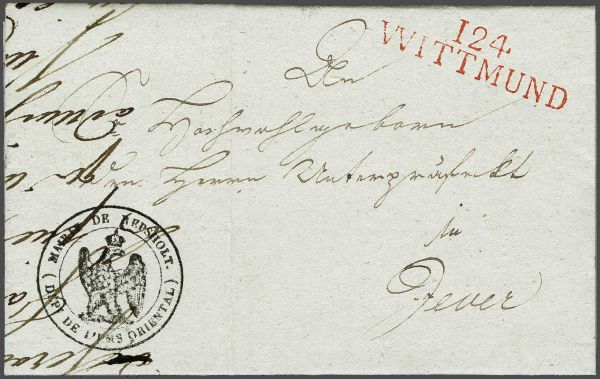 124
WITTMUND
An
Hochwohlgeborn
den Herrn Unterpräfekt
in
Jever
MAIRIE DE REPSHOLT.
(DEPT DE L'EMS ORIENTAL)